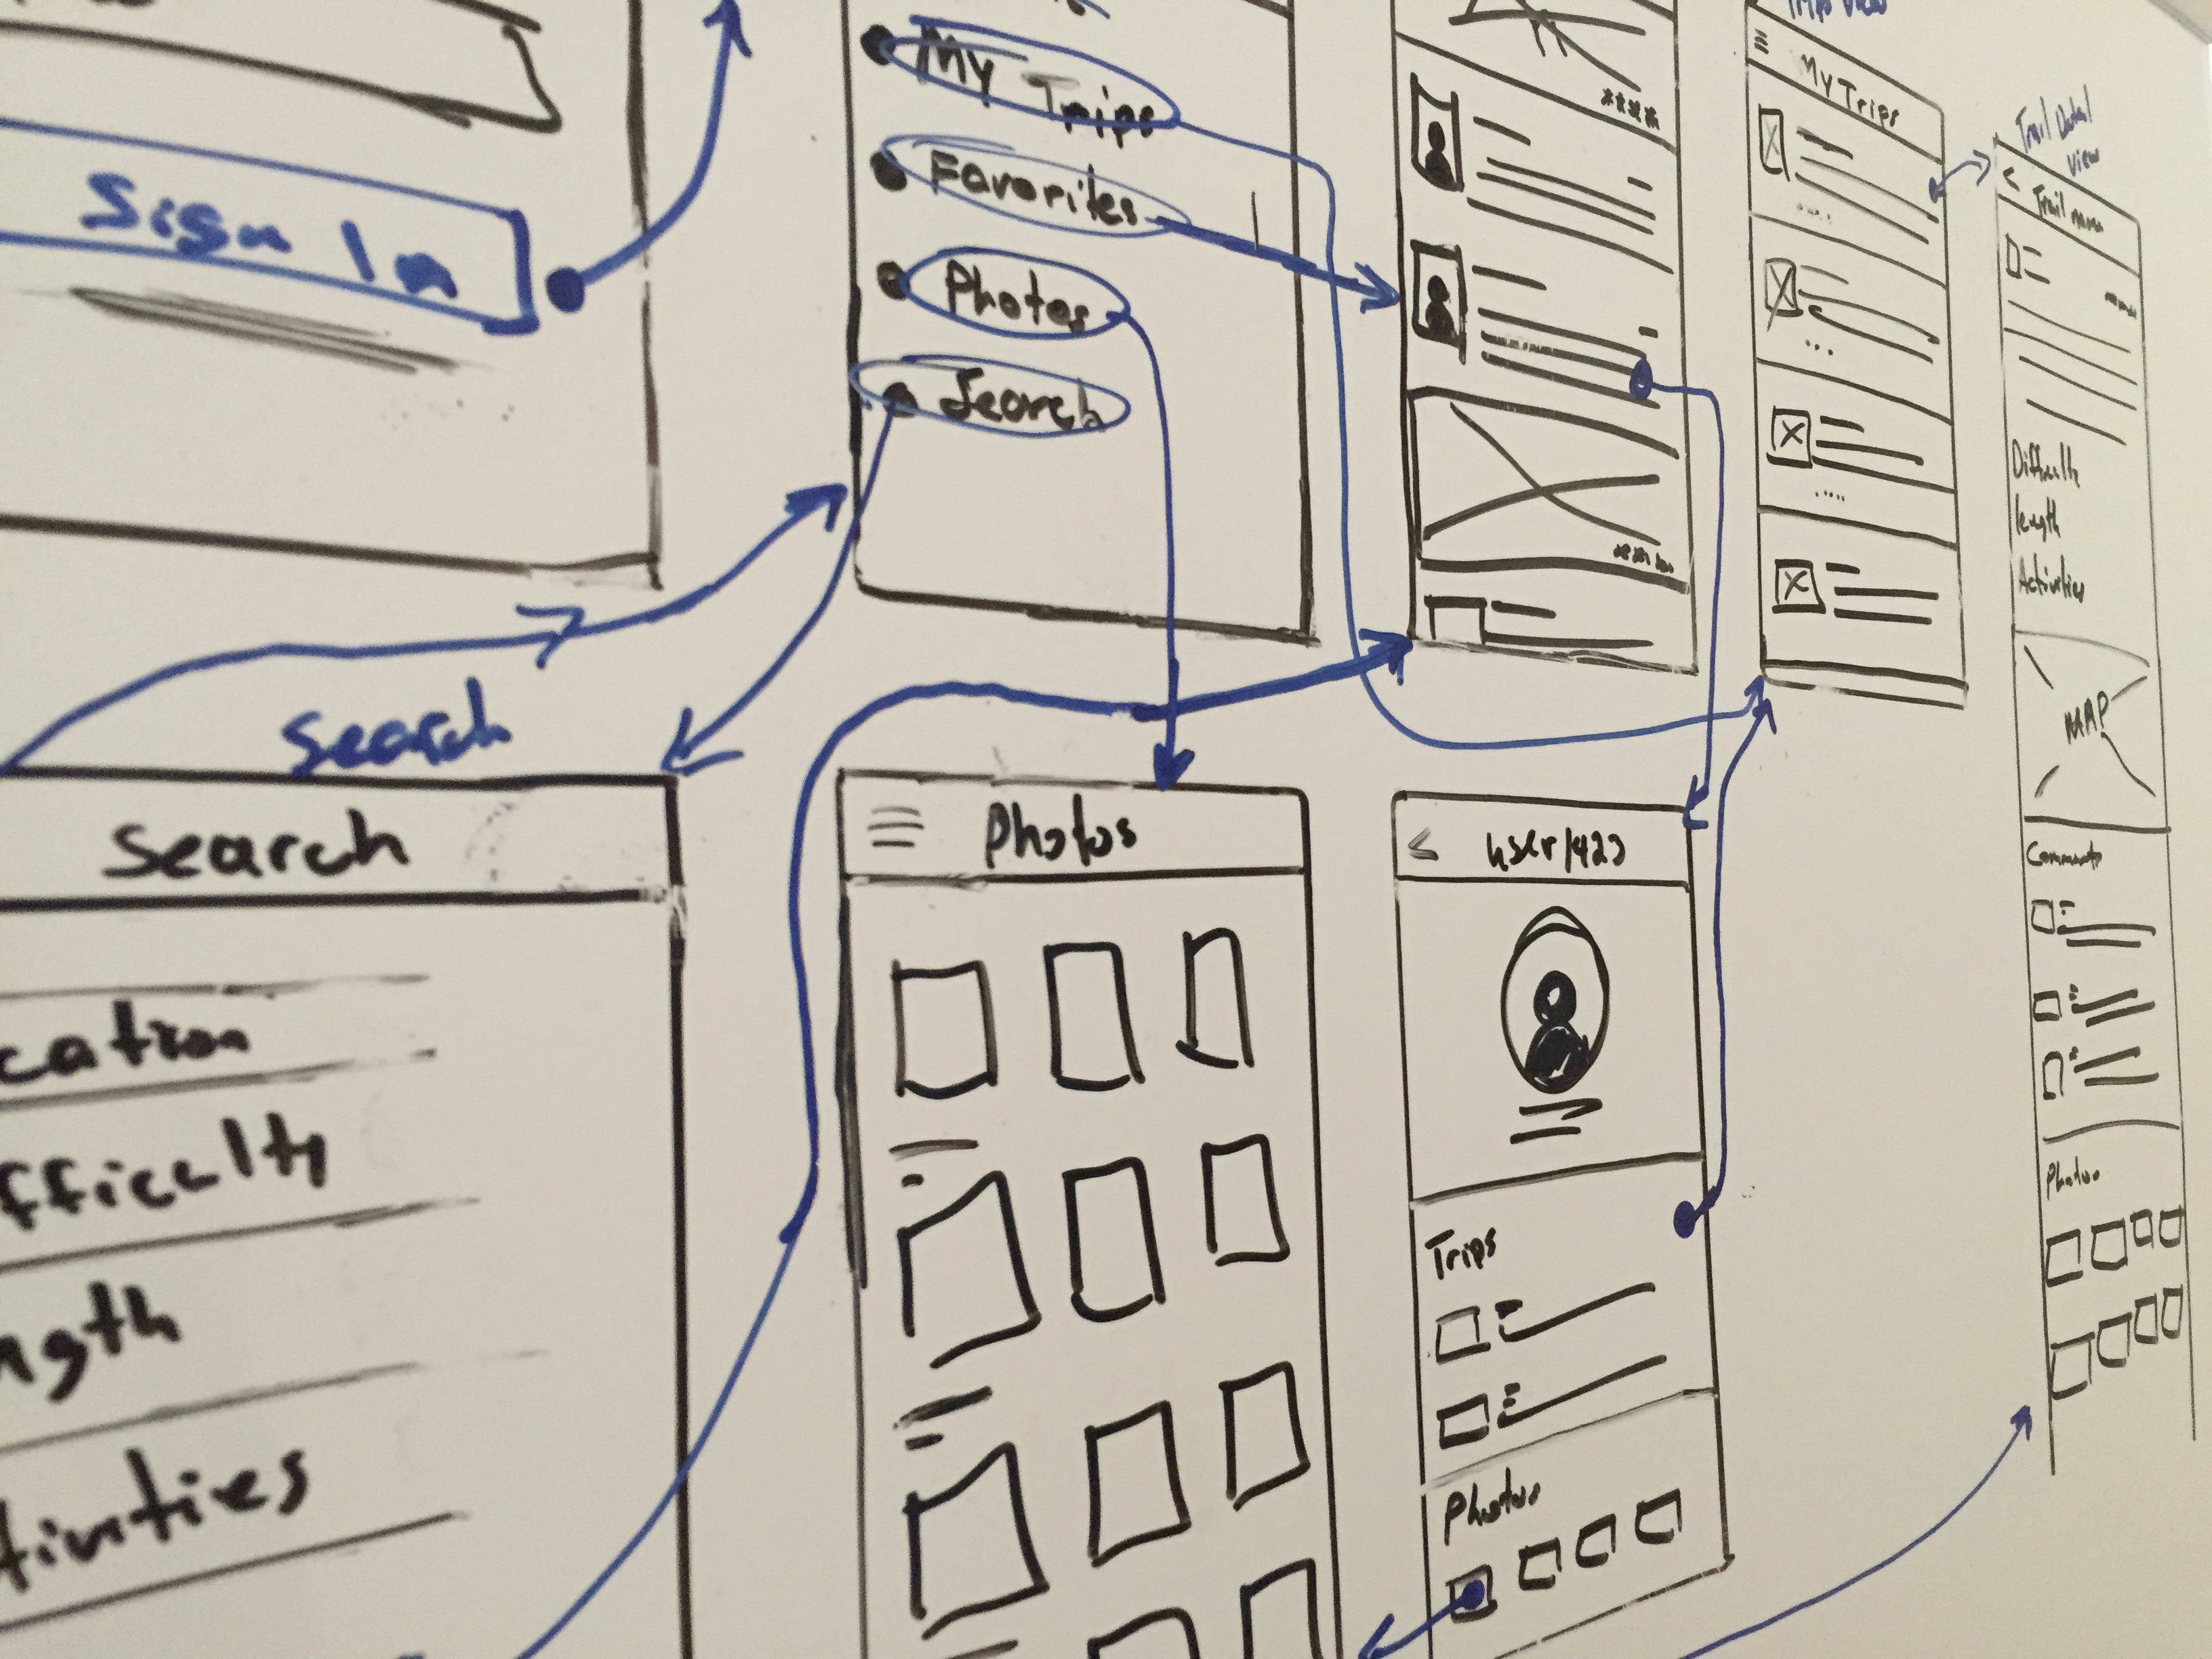 Sign In
My Trips
Favorites
Photos
Search
Trips View
My Trips
Trail Detail
View
Trail name
Difficulty
length
Activities
MAP
Comments
Photos
search
Search
cation
fficulty
ngth
tivities
Photos
Trips
Photos